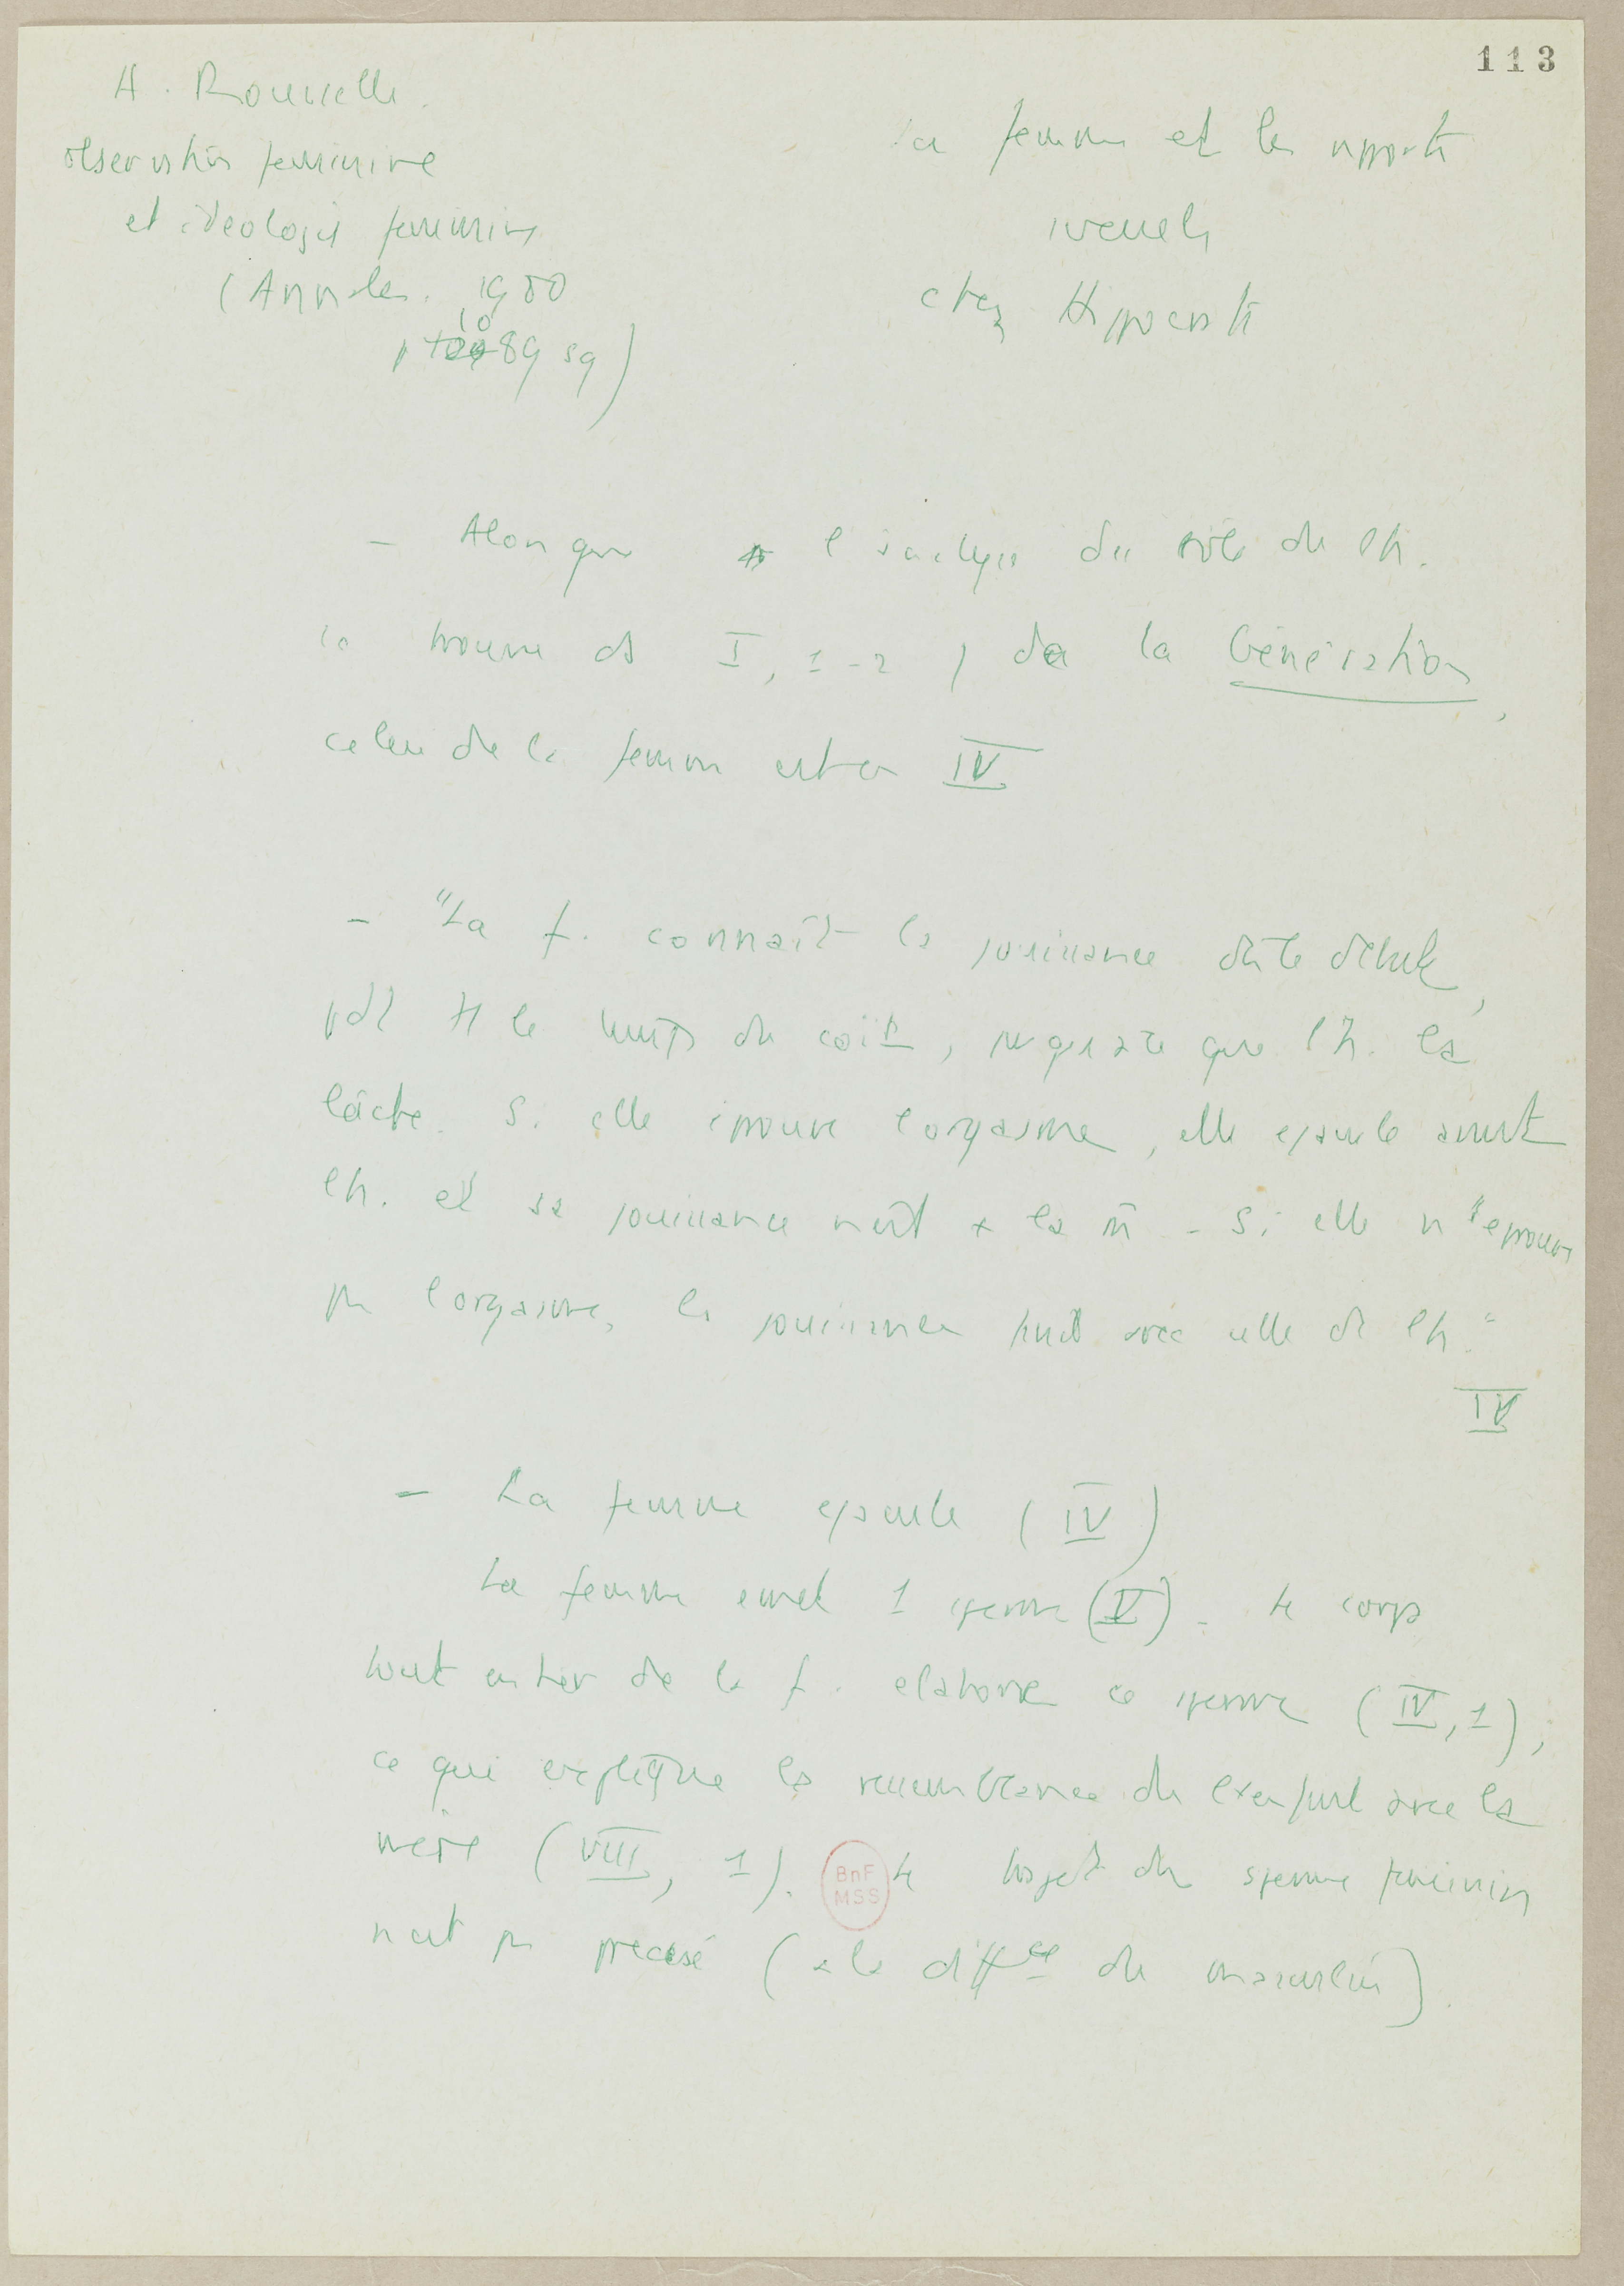 113
A. Rousselle.
observation feminine
et idéologie feminine
(Annales. 1980
p 1089 sq)
La femme et les rapports
sexuels
chez Hippocrate
- Alors que l'analyse du rôle de l'h.
se trouve ds I, 1-2, de la Génération,
celui de la femme est en IV
- "La f. connaît la jouissance dès le début,
pdt tt le temps du coït, jusqu'à ce que l'h. la
lâche. Si elle éprouve l'orgasme, elle ejacule avant
l'h. et sa jouissance n'est + la m̄ - Si elle n'éprouve
pas l'orgasme, sa jouissance finit avec celle de l'h."
IV
- La femme ejacule (IV)
La femme emet 1 sperme (V). Le corps
tout entier de la f. elabore ce sperme (IV, 1),
ce qui explique la ressemblance de l'enfant avec la
mère (VIII, 1). Le trajet du sperme feminin
n'est pas precisé (a la diffce du masculin).
BnF
MSS